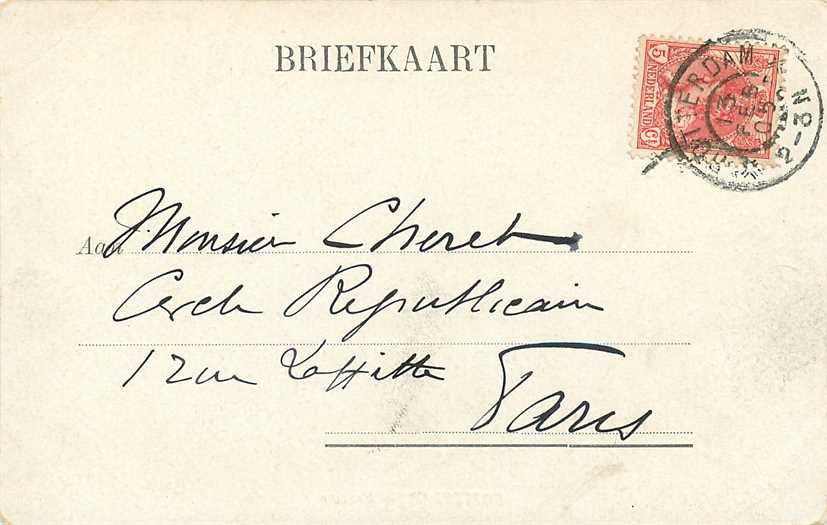 BRIEFKAART
5 NEDERLAND Ct
ROTTERDAM
13 FEB 05
2-3N
Aan Monsieur Cheret
Cercle Républicain
12 rue Laffitte
Paris